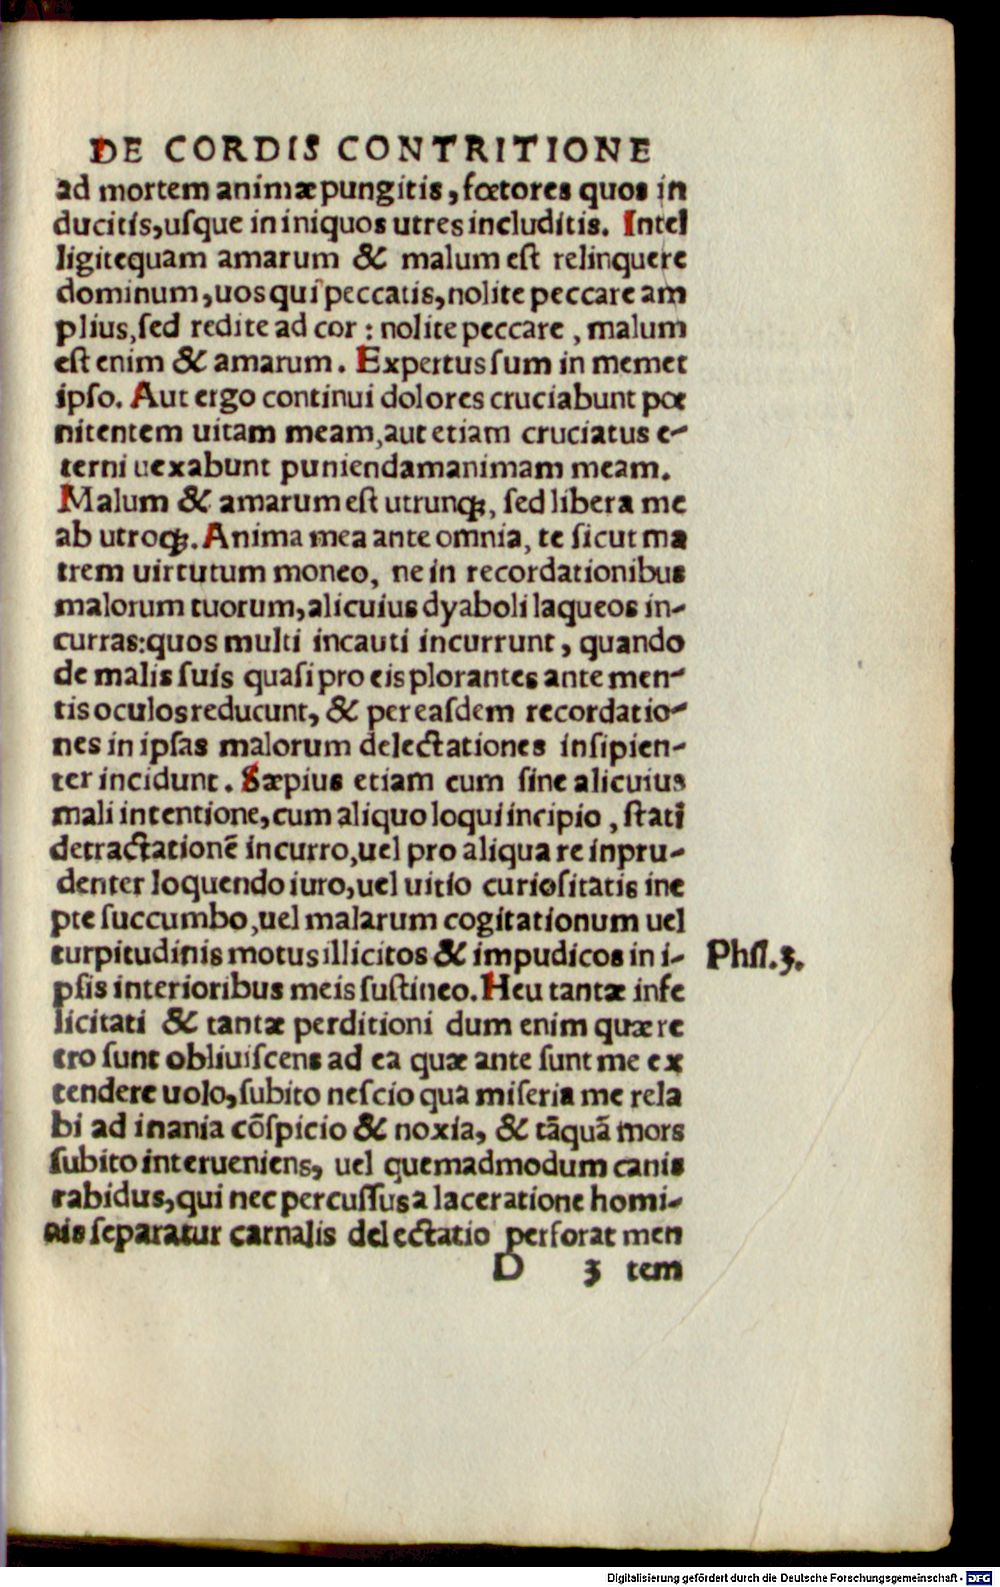 DE CORDIS CONTRITIONE
ad mortem animæ pungitis, fœtores quos in
ducitis, usque in iniquos utres includitis. Intel
ligitequam amarum & malum est relinquere
dominum, uos qui peccatis, nolite peccare am
plius, sed redite ad cor : nolite peccare, malum
est enim & amarum. Expertus sum in memet
ipso. Aut ergo continui dolores cruciabunt pœ
nitentem uitam meam, aut etiam cruciatus e-
terni uexabunt puniendam animam meam.
Malum & amarum est utrunq;, sed libera me
ab utroq;. Anima mea ante omnia, te sicut ma
trem uirtutum moneo, ne in recordationibus
malorum tuorum, alicuius dyaboli laqueos in-
curras: quos multi incauti incurrunt, quando
de malis suis quasi pro eis plorantes ante men-
tis oculos reducunt, & per easdem recordatio-
nes in ipsas malorum delectationes insipien-
ter incidunt. Sæpius etiam cum sine alicuius
mali intentione, cum aliquo loqui incipio, stati
detractationē incurro, uel pro aliqua re inpru-
denter loquendo iuro, uel uitio curiositatis ine
pte succumbo, uel malarum cogitationum uel
turpitudinis motus illicitos & impudicos in i-
Phsl.3.
psis interioribus meis sustineo. Heu tantæ infe
licitati & tantæ perditioni dum enim quæ re
tro sunt obliuiscens ad ea quæ ante sunt me ex
tendere uolo, subito nescio qua miseria me rela
bi ad inania cōspicio & noxia, & tāquā mors
subito interueniens, uel quemadmodum canis
rabidus, qui nec percussus a laceratione homi-
nis separatur carnalis delectatio perforat men
D 3 tem
Digitalisierung gefördert durch die Deutsche Forschungsgemeinschaft - DFG